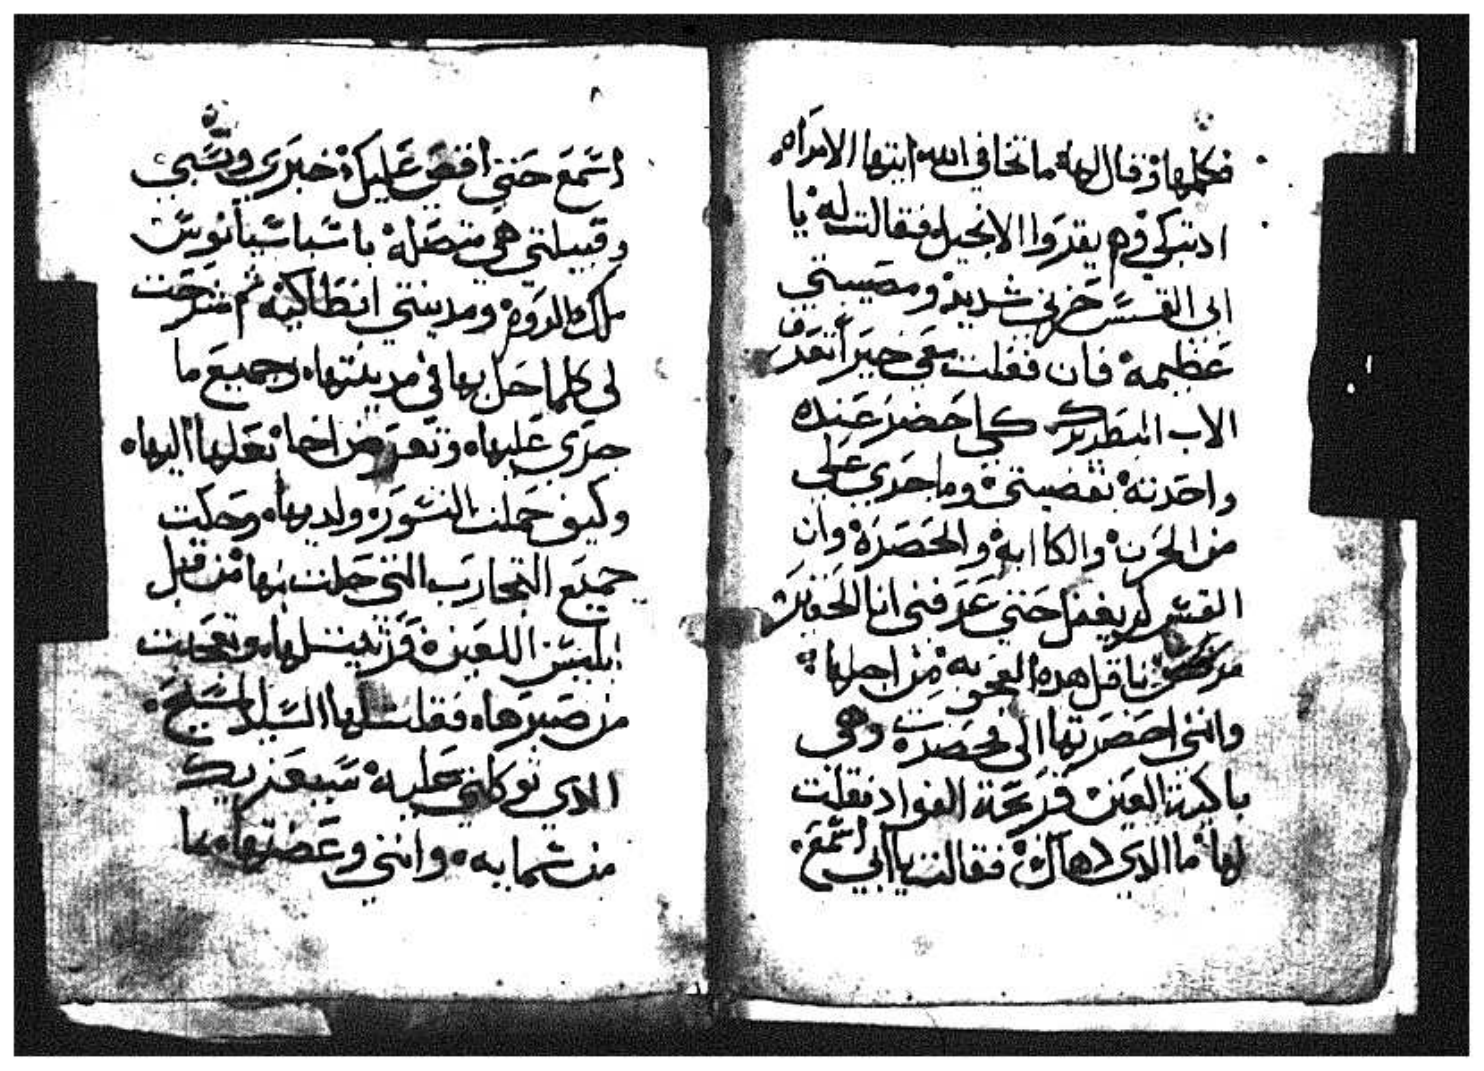 فكلمها وقال لها ما تخافي الله ايتها الامراه
ادتبكي وهم يقروا الانجيل فقالت له يا
ابي القسس حزني شديد ومصيبتي
عظيمة فان فعلت معي خيرا تعرف
الاب البطريرك لكي احضر عنده
واحدته بقصيتي وما جري علي
من الحزن والكاابه والحصره وان
القس لم يغفل حتي عرفني انا الحقير
ناقل هده العجوبه من اجلها
وانني احضرتها الي محضرت وهي
باكية العين قرحة الفواد فقلت
لها ما الدي دهاك فقالت يا ابي اسمع
اسمع حتي اقص عليك خبري ونسبي
وقبيلتي هي متصله باسباسيانوس
ملك الروم ومدينتي انطاكيه ثم شرحت
لي كلما حل بها في مدينتها وجميع ما
جري عليها وتعرض اخا بعلها اليها
وكيف حملت النسوره ولديها وحكيت
جميع التجارب التي حلت بها من قبل
ابليس اللعين فرتيت لها وتعجبت
من صبرها فقلت لها السيد المسيح
الدي توكلتي عليه سيعزيك
من شمابه وانني وعضتها بما